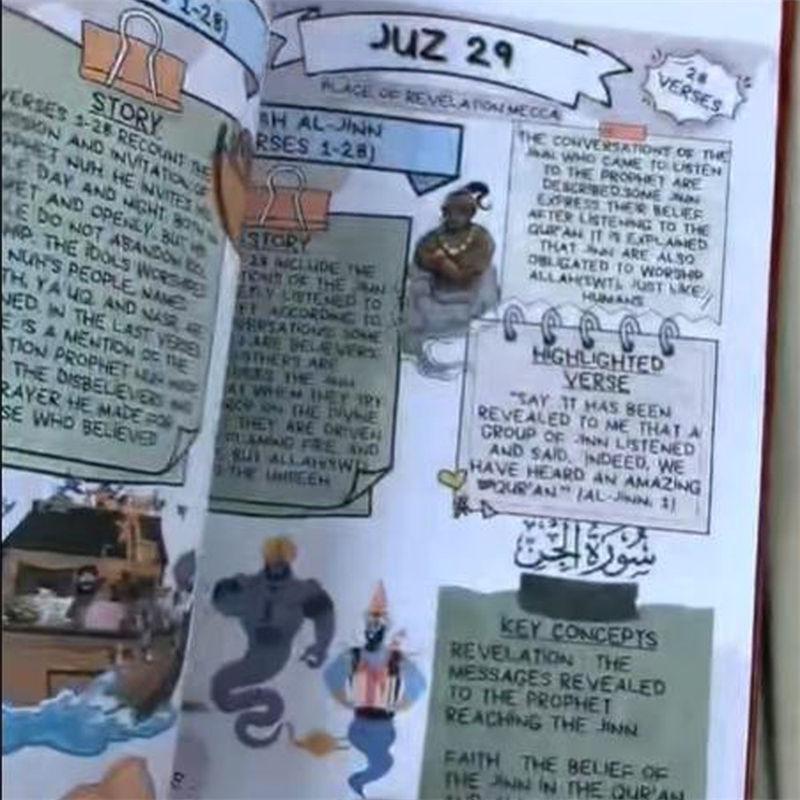 1-28)
STORY
VERSES 1-28 RECOUNT THE
AND INVITATION OF
PROPHET NUH HE INVITES
DAY AND NIGHT BOTH
AND OPENLY. BUT
DO NOT ABANDON
THE IDOLS WORSHIPED
NUH'S PEOPLE, NAMED
YA'UQ, AND NASR ARE
IN THE LAST VERSES
IS A MENTION OF THE
PROPHET NUH
THE DISBELIEVERS AND
PRAYER HE MADE FOR
WHO BELIEVED
JUZ 29
28
VERSES
PLACE OF REVELATION MECCA
AL-JINN
1-28)
THE CONVERSATIONS OF THE
JINN WHO CAME TO LISTEN
TO THE PROPHET ARE
DESCRIBED. SOME JINN
EXPRESS THEIR BELIEF
AFTER LISTENING TO THE
QUR'AN. IT IS EXPLAINED
THAT JINN ARE ALSO
OBLIGATED TO WORSHIP
ALLAH(SWT), JUST LIKE
HUMANS
STORY
28 INCLUDE THE
OF THE JINN
LISTENED TO
ACCORDING TO
SOME
ARE BELIEVERS
OTHERS ARE
THE JINN
WHEN THEY TRY
ON THE DIVINE
THEY ARE DRIVEN
FLAMING FIRE, AND
BUT ALLAH(SWT)
THE UNSEEN
HIGHLIGHTED
VERSE
"SAY, 'IT HAS BEEN
REVEALED TO ME THAT A
GROUP OF JINN LISTENED
AND SAID, 'INDEED, WE
HAVE HEARD AN AMAZING
QUR'AN." (AL-JINN, 1)
سورة الجن
KEY CONCEPTS
REVELATION : THE
MESSAGES REVEALED
TO THE PROPHET
REACHING THE JINN.
FAITH : THE BELIEF OF
THE JINN IN THE QUR'AN